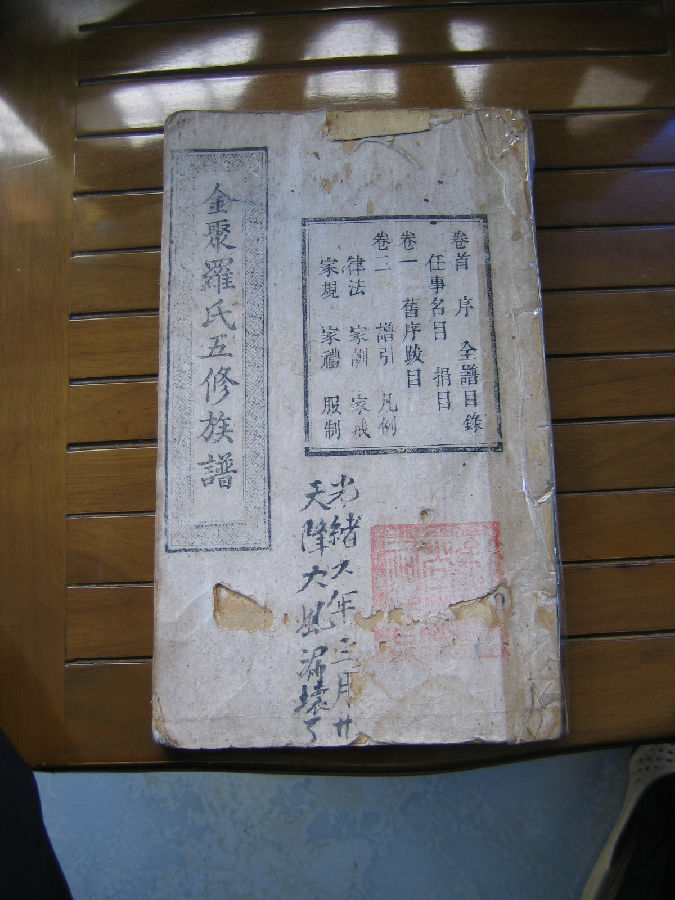 金聚羅氏五修族譜
卷首 序 全譜目錄
任事名目 捐目
卷一 舊序跋目
卷二 譜引 凡例
律法 家訓 家戒
家規 家禮 服制
光緒 年三月廿
天降大風漏壞了